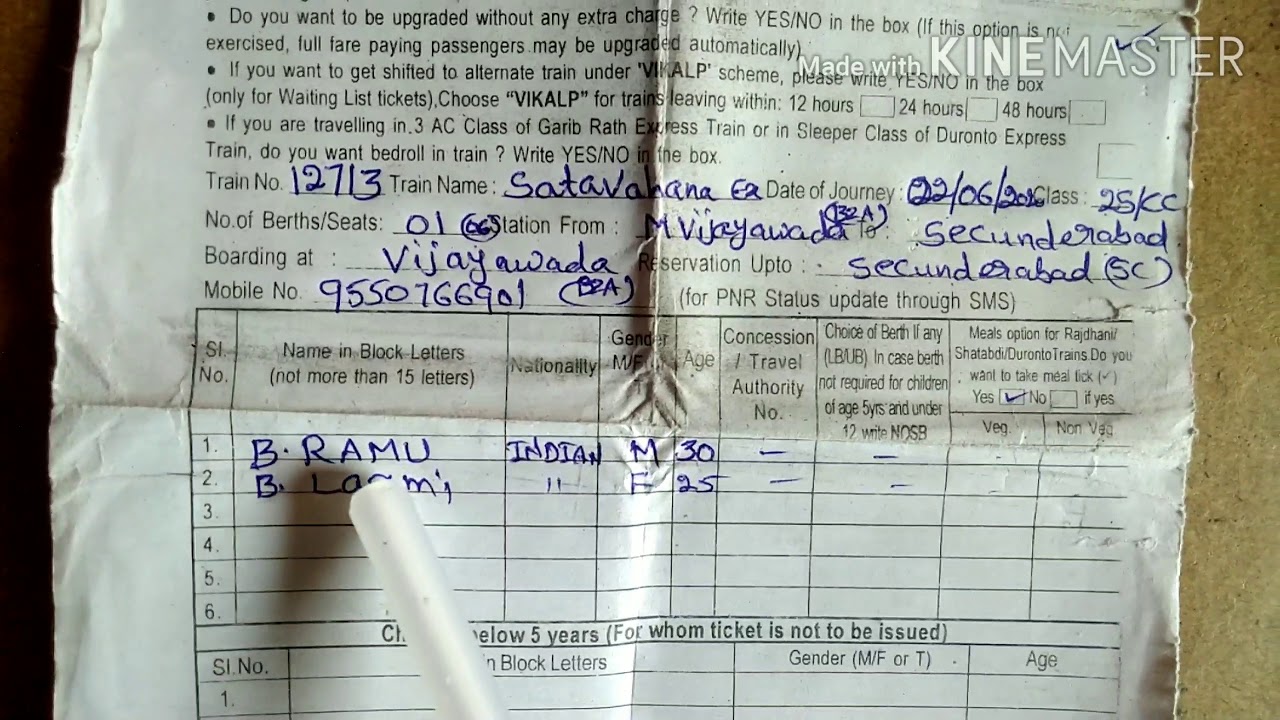 • Do you want to be upgraded without any extra charge ? Write YES/NO in the box (If this option is not
exercised, full fare paying passengers may be upgraded automatically)
Made with KINEMASTER
• If you want to get shifted to alternate train under 'VIKALP' scheme, please write YES/NO in the box
(only for Waiting List tickets),Choose "VIKALP" for trains leaving within: 12 hours 24 hours 48 hours
• If you are travelling in 3 AC Class of Garib Rath Express Train or in Sleeper Class of Duronto Express
Train, do you want bedroll in train ? Write YES/NO in the box.
Train No. 12713 Train Name : Satavahana Ex Date of Journey : 22/06/ Class : 2S/CC
No.of Berths/Seats: 01 Station From : Vijayawada (BZA) To : Secunderabad
Boarding at : Vijayawada Reservation Upto : Secunderabad (SC)
Mobile No. 9550766901 (BZA) (for PNR Status update through SMS)
Sl. No. Name in Block Letters (not more than 15 letters) Nationality Gender M/F Age Concession / Travel Authority No. Choice of Berth If any (LB/UB) In case berth not required for children of age 5yrs and under 12 write NOSB Meals option for Rajdhani/ Shatabdi/DurontoTrains.Do you want to take meal tick (✓) Yes ✓ No if yes
Veg. Non Veg
1. B. RAMU INDIAN M 30 – –
2. B. " F 25 – –
3.
4.
5.
6.
below 5 years (For whom ticket is not to be issued)
Sl.No. in Block Letters Gender (M/F or T) Age
1.